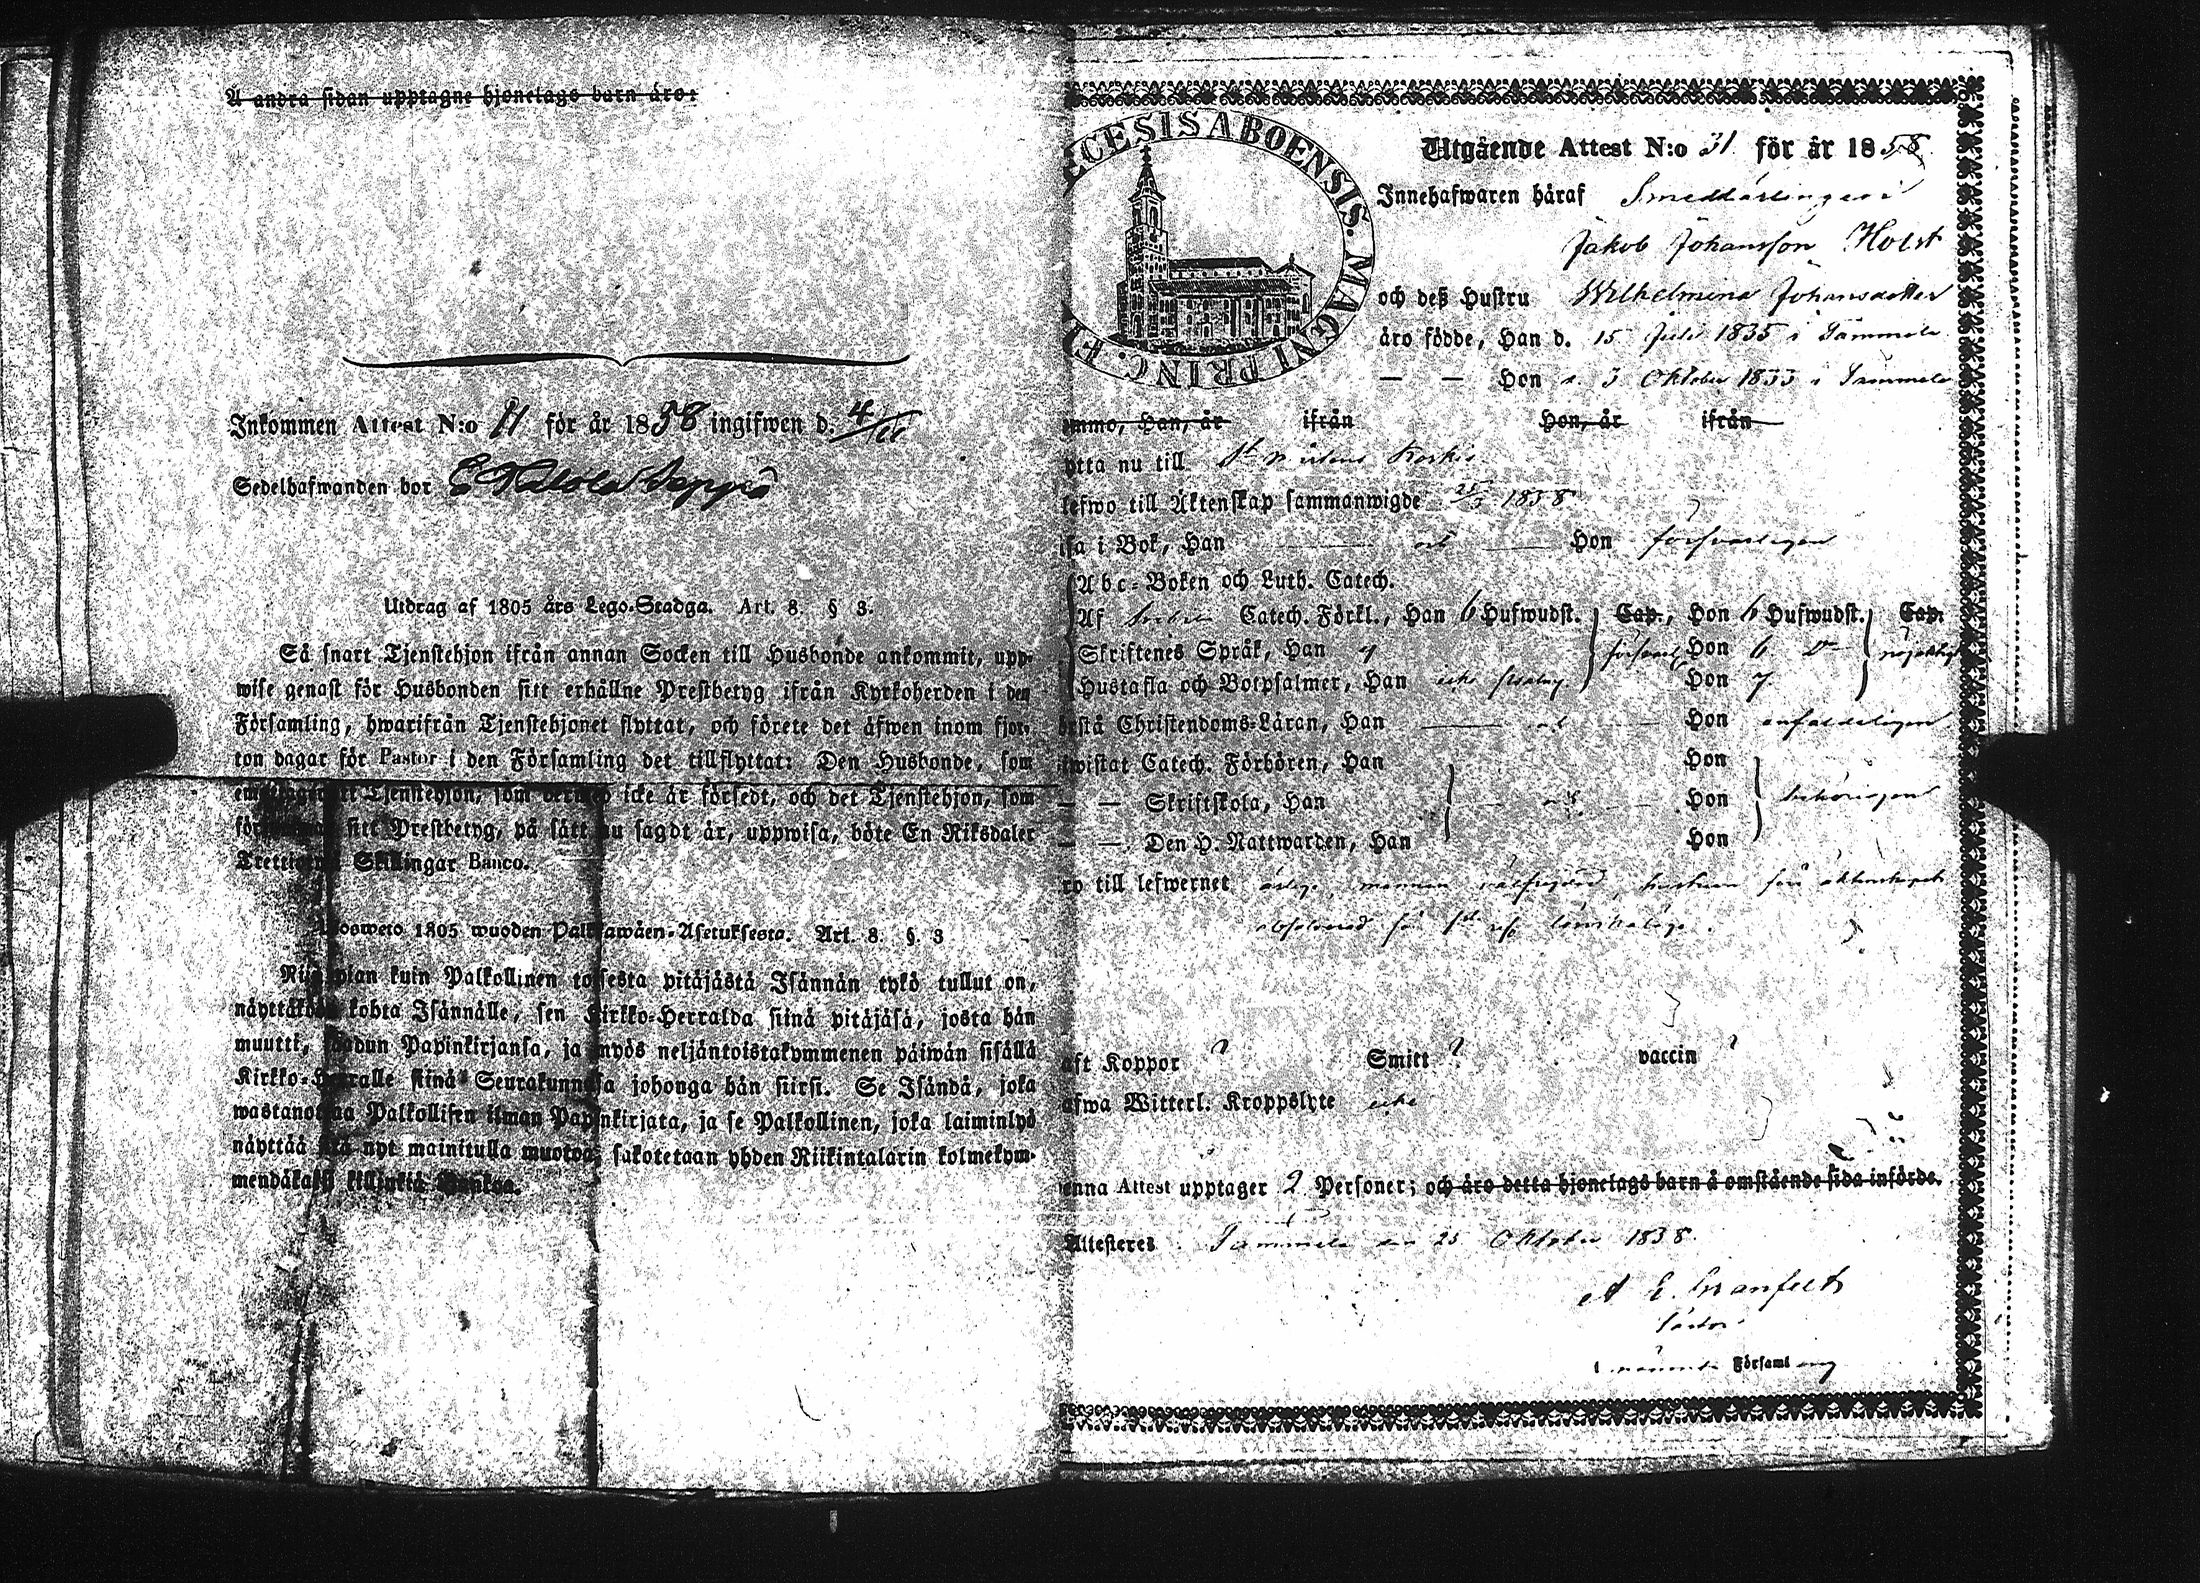 A andra sidan upptagne hjonelags barn äro:
Inkommen Attest N:o 11 för år 1858 ingifwen d. 4/11
Sedelhafwanden bor
Utdrag af 1805 års Lego-Stadga. Art. 8. § 3.
Så snart Tjenstehjon ifrån annan Socken till Husbonde ankommit, upp-
wise genast för Husbonden sitt erhållne Prestbetyg ifrån Kyrkoherden i den
Församling, hwarifrån Tjenstehjonet flyttat, och förete det äfwen inom fjor-
ton dagar för Pastor i den Församling det tillflyttat: Den Husbonde, som
Tjenstehjon, som dermed icke är försedt, och det Tjenstehjon, som
sitt Prestbetyg, på sätt nu sagdt är, uppwisa, böte En Riksdaler
Skillingar Banco.
1805 wuoden Palkkawäen-Asetuksesta. Art. 8. §. 3
kuin Palkollinen toisesta pitäjästä Isännän tykö tullut on,
kohta Isännälle, sen Kirkko-Herralda siinä pitäjäsä, josta hän
muutti, saadun Papinkirjansa, ja myös neljäntoistakymmenen päiwän sisällä
Kirkko-Herralle siinä Seurakunnasa johonga hän siirsi. Se Isändä, joka
wastanottaa Palkollisen ilman Papinkirjata, ja se Palkollinen, joka laiminlyö
näyttää sitä nyt mainitulla muotoa, sakotetaan yhden Riikintalarin kolmekym-
mendäkaksi killinkiä Bankoa.
ECESIS ABOENSIS. MAGNI PRINC.
Utgående Attest N:o 31 för år 1858
Innehafwaren häraf
Jakob Johansson Holst
och deß Hustru Wilhelmina Johansdotter
äro födde, Han d. 15 Juli 1835 i Tammela
— — Hon d. 3 Oktober 1833 i Tammela
ommo, Han, år ifrån Hon, år ifrån
ytta nu till St Mårtens Koskis
lefwo till Äktenskap sammanwigde 25/3 1858
äsa i Bok, Han — och — Hon förswarligen
Abc-Boken och Luth. Catech.
Af Catech. Förkl., Han 6 Hufwudst. Cap., Hon 6 Hufwudst. Cap.
Skriftenes Språk, Han Hon 6 Do
Hustafla och Botpsalmer, Han icke Hon 7
örstå Christendoms-Läran, Han — och — Hon enfaldeligen
wistat Catech. Förhören, Han Hon
— — Skriftskola, Han — och — Hon behörigen
— — Den H. Nattwarden, Han Hon
ro till lefwernet ärlige, mannen wälfrejdad, hustrun för
absolverad
aft Koppor ? Smitt ? vaccin ?
afwa Witterl. Kroppslyte icke
enna Attest upptager 2 Personer; och äro detta hjonelags barn å omstående sida införde.
Attesteres Tammela den 25 Oktober 1858.
A E Granfelt
Pastor
i nämnde Församling